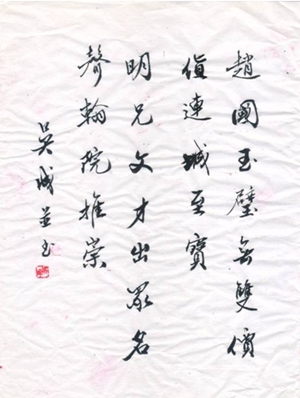 趙國玉璧無雙價
值連城至寶
明兄文才出眾名
聲翰院推崇
吳成並書